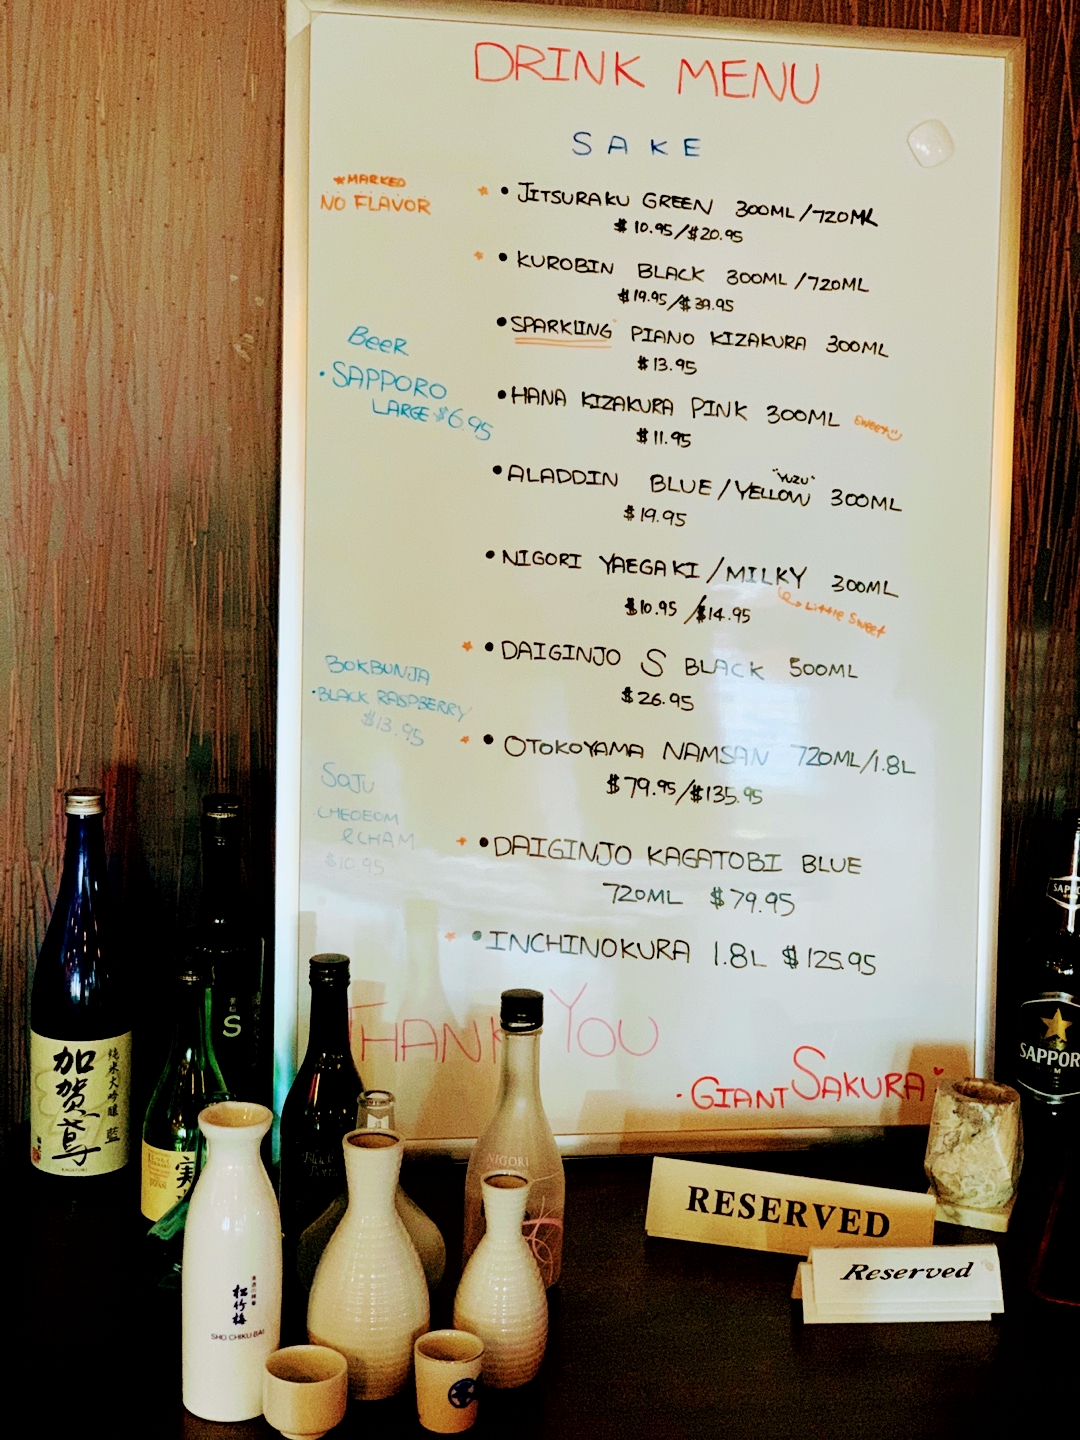 DRINK MENU
SAKE
*MARKED
NO FLAVOR
* • JITSURAKU GREEN 300ML/720ML
$10.95/$20.95
* • KUROBIN BLACK 300ML/720ML
$19.95/$39.95
• SPARKLING PIANO KIZAKURA 300ML
$13.95
BeeR
• SAPPORO
LARGE $6.95
• HANA KIZAKURA PINK 300ML sweet
$11.95
"YUZU"
• ALADDIN BLUE/YELLOW 300ML
$19.95
• NIGORI YAEGAKI/MILKY 300ML
$10.95/$14.95
Little Sweet
* • DAIGINJO S BLACK 500ML
$26.95
BOKBUNJA
• BLACK RASPBERRY
$13.95
* • OTOKOYAMA NAMSAN 720ML/1.8L
$79.95/$135.95
SOJU
CHEOEOM
&CHAM
$10.95
* • DAIGINJO KAGATOBI BLUE
720ML $79.95
* • INCHINOKURA 1.8L $125.95
THANK YOU
• GIANT SAKURA
加賀鳶
純米大吟醸 藍
KAGATOBI
S
実
Black
NIGORI
松竹梅
SHO CHIKU BAI
RESERVED
Reserved
SAPPO
SAPPOR